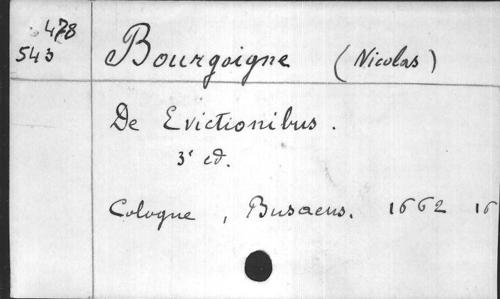 478
543
Bourgoigne (Nicolas)
De Evictionibus.
3e ed.
Cologne, Busaeus. 1662 16